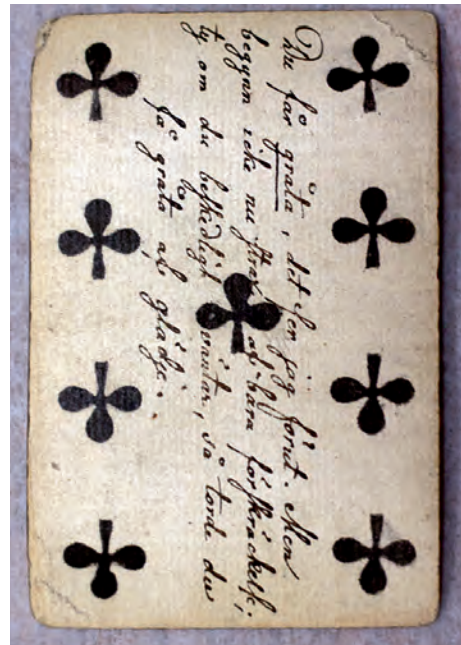 Du får gråta, det ser jag förut. Men
begynn icke nu strax af bara förskräckelse;
ty om du beskedligt väntar, så torde du
få gråta af glädje.